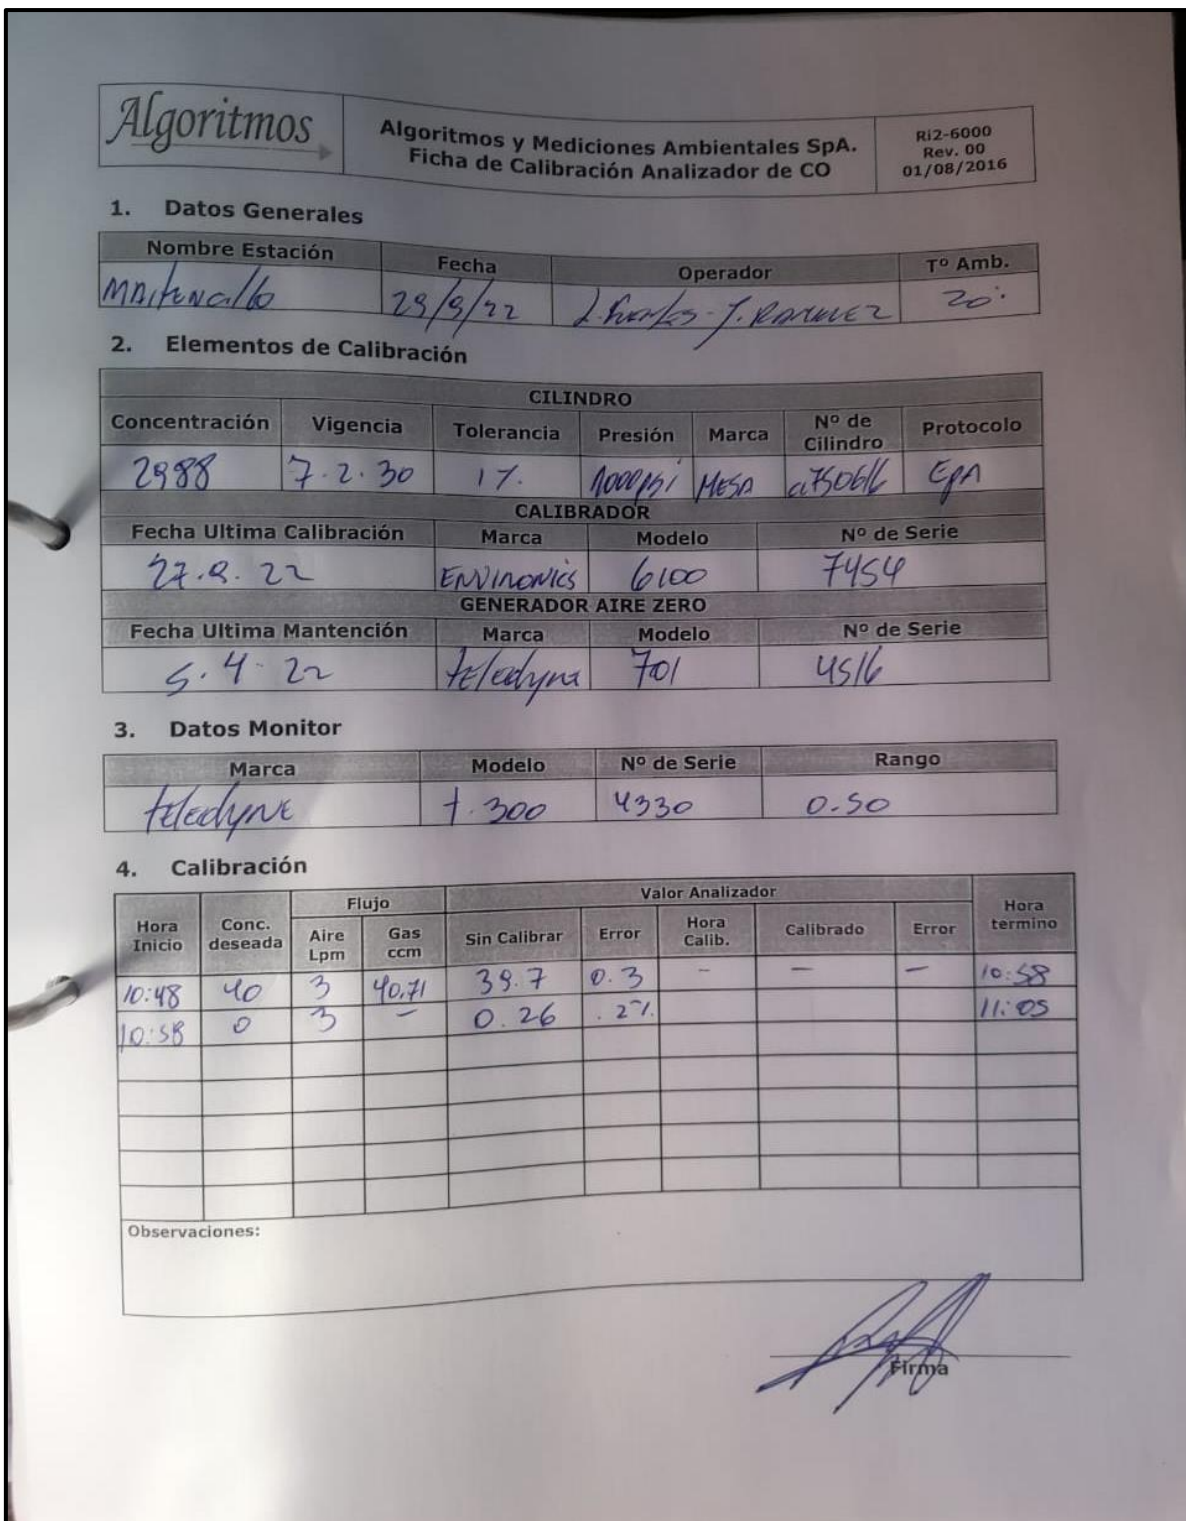 Algoritmos
Algoritmos y Mediciones Ambientales SpA.
Ficha de Calibración Analizador de CO
Ri2-6000
Rev. 00
01/08/2016
1. Datos Generales
Nombre Estación Fecha Operador Tº Amb.
29/9/22 J. RAMIREZ 20°
2. Elementos de Calibración
CILINDRO
Concentración Vigencia Tolerancia Presión Marca Nº de Cilindro Protocolo
2988 7.2.30 1%. 1000psi MESA EPA
CALIBRADOR
Fecha Ultima Calibración Marca Modelo Nº de Serie
27.9.22 ENVIRONICS 6100 7454
GENERADOR AIRE ZERO
Fecha Ultima Mantención Marca Modelo Nº de Serie
5.4.22 teledyne 701 4516
3. Datos Monitor
Marca Modelo Nº de Serie Rango
teledyNE t.300 4330 0.50
4. Calibración
Hora Inicio Conc. deseada Flujo Aire Lpm Gas ccm Valor Analizador Sin Calibrar Error Hora Calib. Calibrado Error Hora termino
10:48 40 3 40,71 39.7 0.3 - - - 10:58
10:58 0 3 - 0.26 .2%. 11:05
Observaciones:
Firma